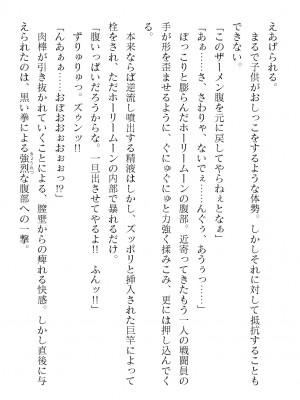 えあげられる。
まるで子供がおしっこをするような体勢。しかしそれに対して抵抗することも
できない。
「このザーメン腹を元に戻してやらねぇとなぁ」
「あぁ……さ、さわりゃ、ないでぇ……んぐぅ、あうぅっ……」
ぽっこりと膨らんだホーリームーンの腹部。近寄ってきたもう一人の戦闘員の
手が形を歪ませるように、ぐにゅぐにゅと力強く揉みこみ、更には押し込んでく
る。
本来ならば逆流し噴出する精液は、しかし、ズッポリと挿入された巨竿によって
栓をされ、ただホーリームーンの内部で暴れるだけ。
「腹いっぱいだろうからな。一旦出させてやるよ!! ふんッ!!」
ずりゅりゅっ。ズゥンッ!!
「んあぁぁ……おぼぉぉおぉおぉっっ!?」
肉棒が引き抜かれていくことによる、膣裏からの痺れる快感。しかし直後に与
えられたのは、黒い拳による強烈な腹部への一撃。